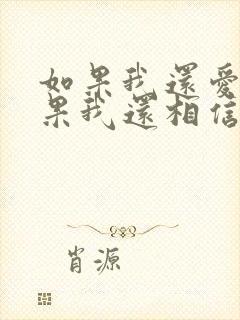 如果我還愛
果我還相信
肖源